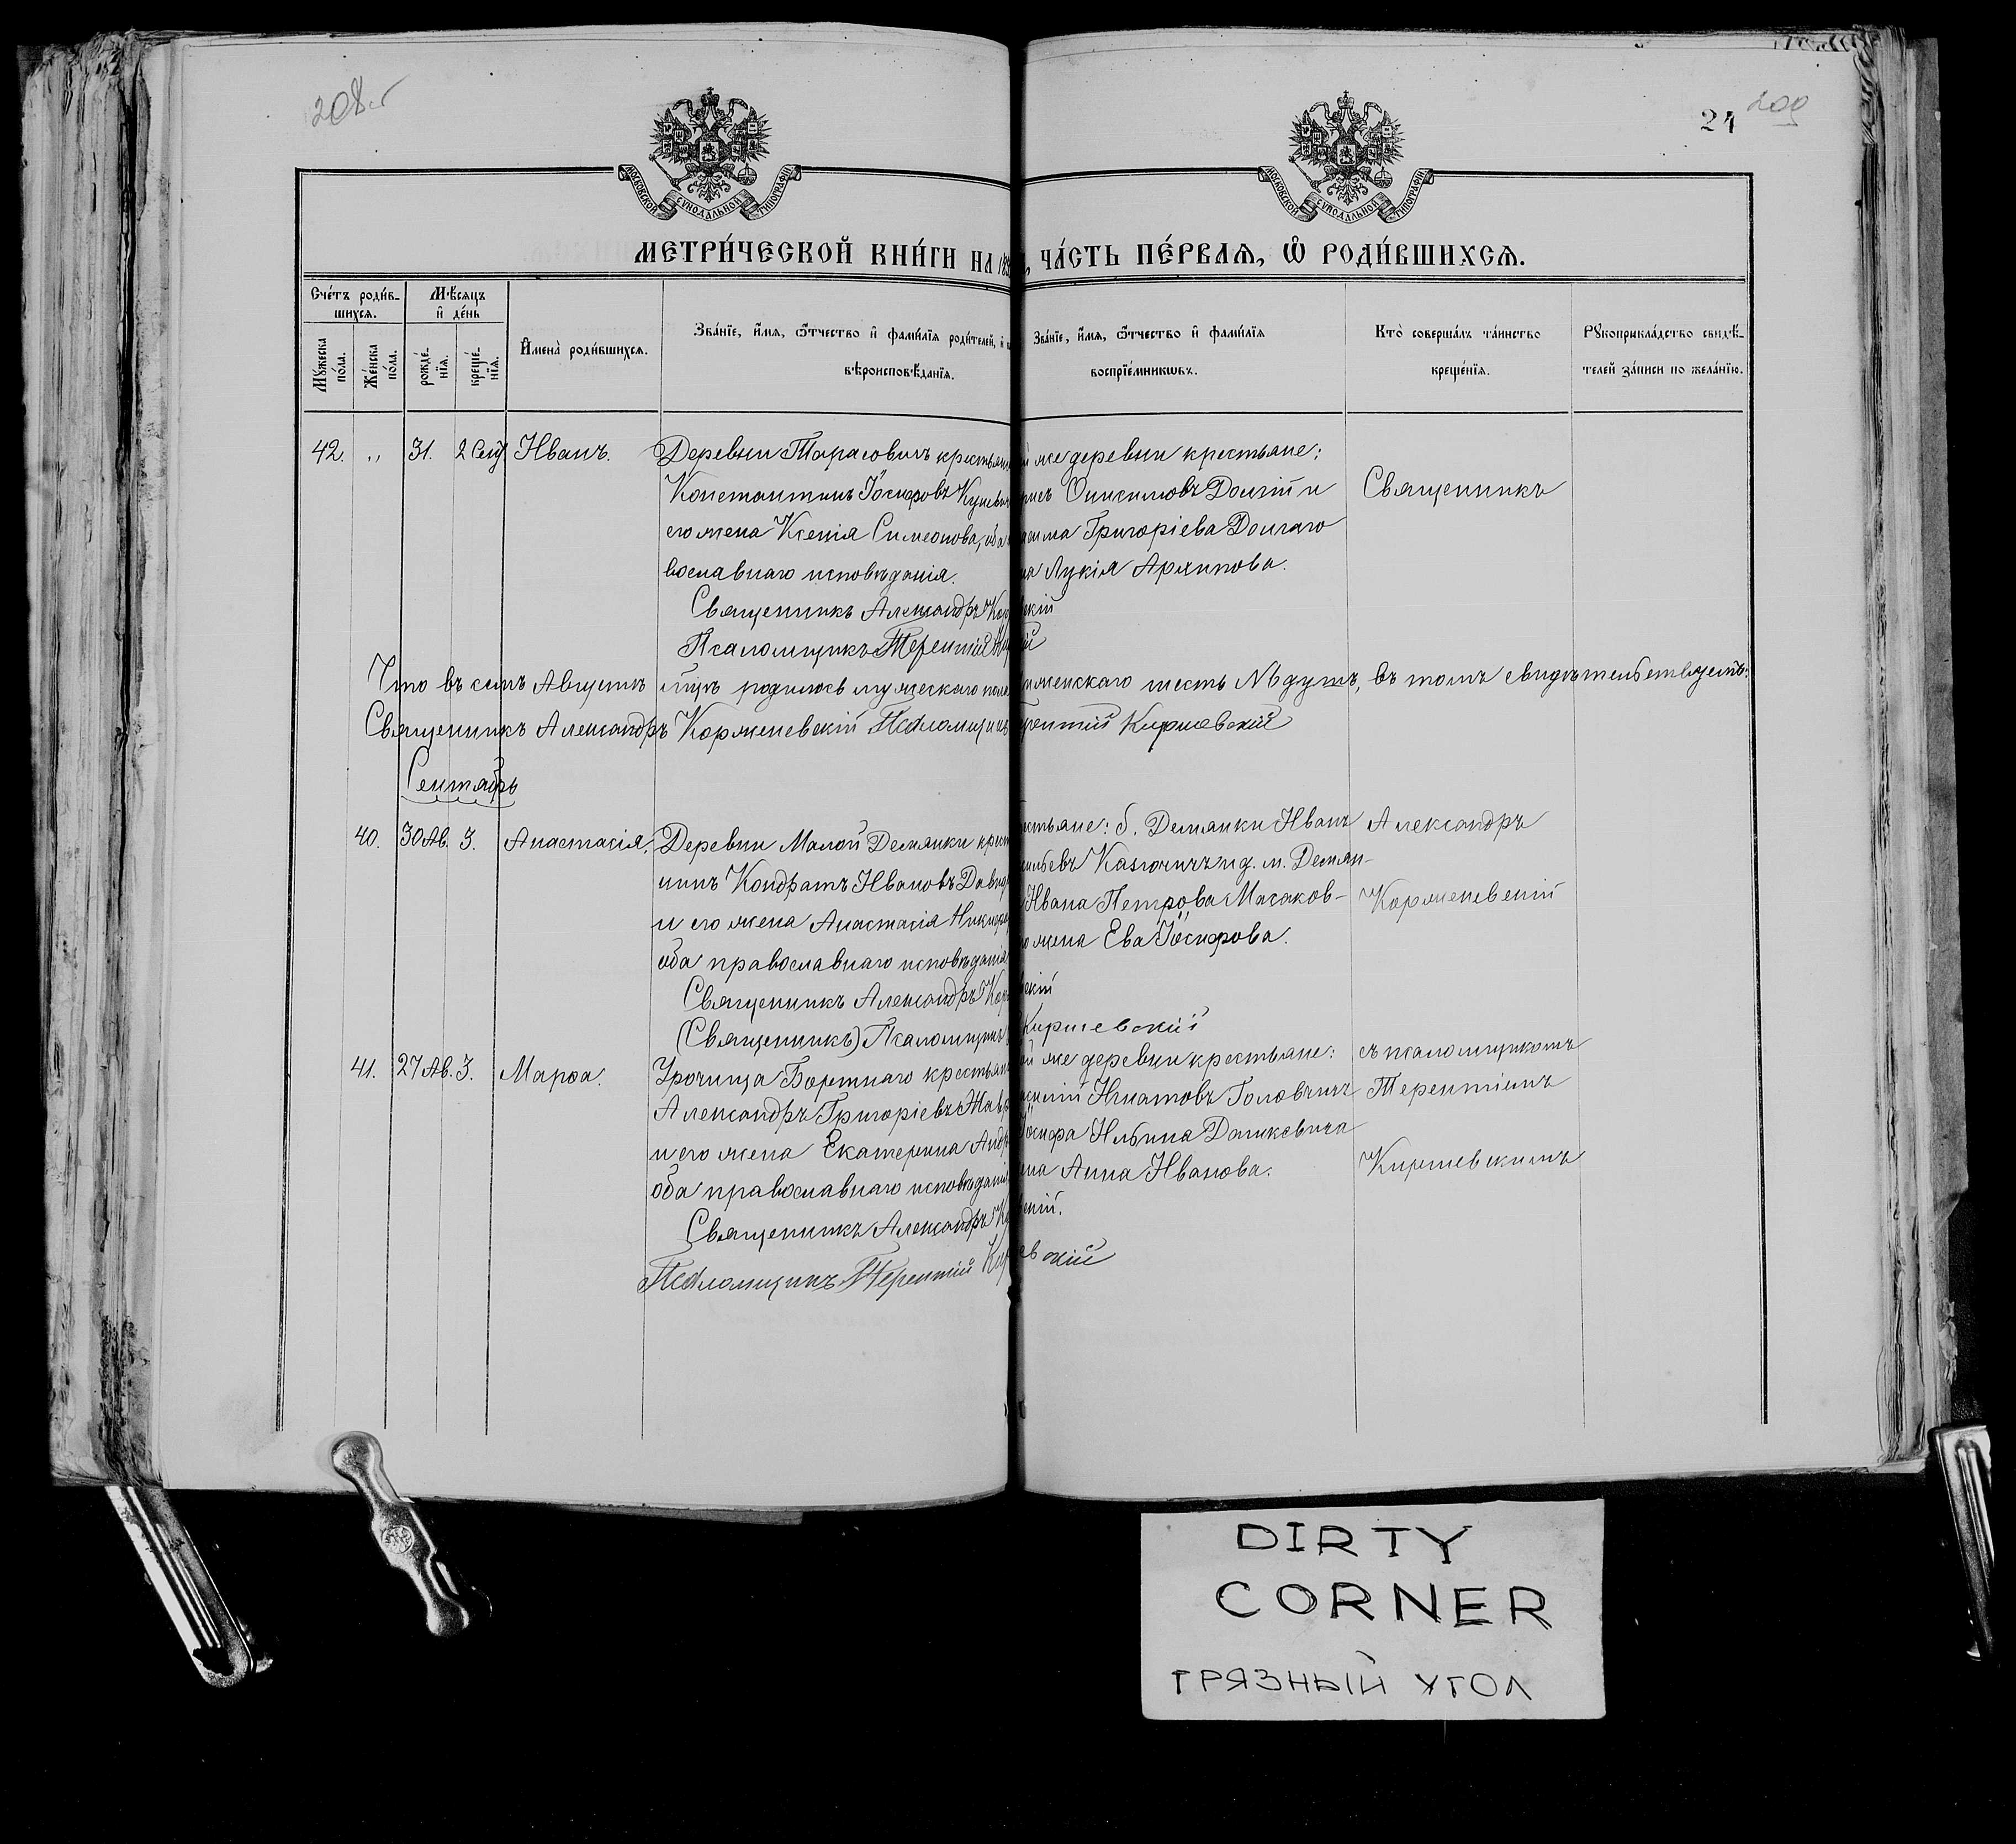 208об
24 209
МОСКОВСКОЙ СѴНОДАЛЬНОЙ ТИПОГРАФІИ
МОСКОВСКОЙ СѴНОДАЛЬНОЙ ТИПОГРАФІИ
МЕТРИ́ЧЕСКОЙ КНИ́ГИ НА , ЧА́СТЬ ПЕ́РВАѦ, Ѡ҆ РОДИ́ВШИХСѦ.
Счётъ роди́в-
шихсѧ.
Мѣ́сѧцъ
и҆ де́нь
Мꙋ́жеска по́ла.
Же́нска по́ла.
рожде́-
нїѧ.
креще́-
нїѧ.
И҆мена̀ роди́вшихсѧ.
Зва́нїе, и҆́мѧ, ѻ҆́тчество и҆ фами́лїѧ роди́телей, и҆
вѣроисповѣ́данїѧ.
Зва́нїе, и҆́мѧ, ѻ҆́тчество и҆ фами́лїѧ
воспрїе́мникѡвъ.
Кто̀ соверша́лъ та́инство
креще́нїѧ.
Рꙋкоприкла́дство свидѣ́-
телей за́писи по жела́нїю.
42. „ 31. 2 Сен Иванъ. Деревни Тарасовичъ крестьян
Константинъ Іосифовъ Куневич
его жена Ксенія Симеонова, оба
вославнаго исповѣданія.
Священникъ Александръ Кор
Псаломщикъ Терентій
й же деревни крестьяне:
Онисимовъ Долгій и
Григоріева Долгаго
на Лукія Архипова.
скій
ій
Священникъ
Что въ семъ Августѣ м‑цѣ родилось мужескаго пола женскаго шесть душъ, въ томъ свидѣтельствуемъ:
Священникъ Александръ Корженевскій Псаломщикъ рентій Киршевскій
Сентябрь
40. 30 Ав. 3. Анастасія. Деревни Малой Демянки крест
нинъ Кондратъ Ивановъ Давид
и его жена Анастасія Никифор
оба православнаго исповѣданія
Священникъ Александръ Кор
(Священникъ) Псаломщикъ
стьяне: б. Демянки Иванъ
сильевъ Казючичъ и д. м. Демян-
Ивана Петрова Масаков-
о жена Ева Іосифова.
скій
Киршевскій
Александръ
Корженевскій
41. 27 Ав. 3. Марѳа. Урочища Бортнаго крестьян
Александръ Григоріевъ Жав
и его жена Екатерина Андр
оба православнаго исповѣданія
Священникъ Александръ Ко
Псаломщикъ Терентій Кир
й же деревни крестьяне:
Игнатовъ Головчичъ
Іосифа Ильина Дашкевича
на Анна Иванова.
скій.
евскій
съ псаломщикомъ
Терентіемъ
Киршевскимъ
DIRTY
CORNER
ГРЯЗНЫЙ УГОЛ